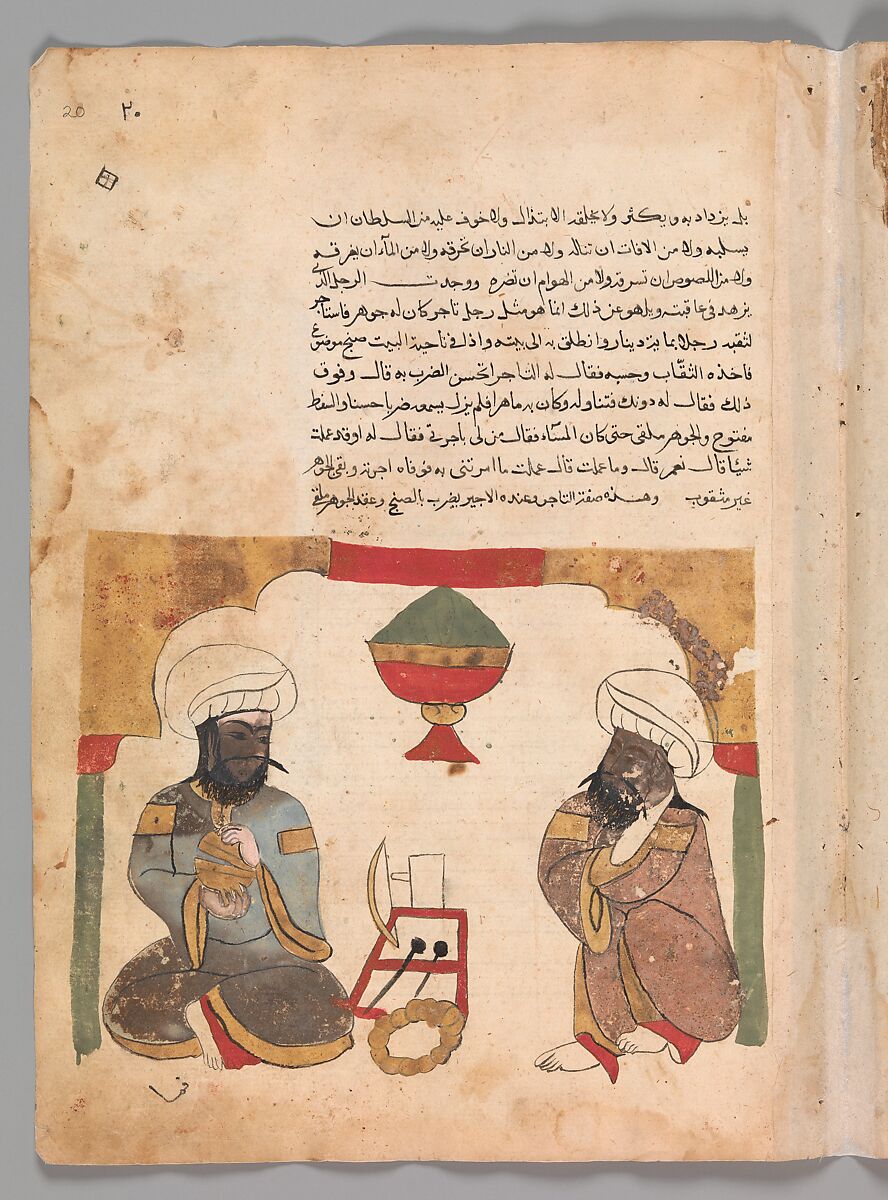 20 ٢٠
بل يزداد به ويكثر ولا يخلقه الابتذال ولا خوف عليه من السلطان ان
يسلبه ولا من الافات ان تناله ولا من النار ان تحرقه ولا من المآء ان يغرقه
ولا من اللصوص ان تسرقه ولا من الهوام ان تضره ووجدت الرجل الذي
يزهد في عاقبته ويلهو عن ذلك انما هو مثل رجل تاجر كان له جوهر فاستاجر
لثقبه رجلا بماية دينار وانطلق به الى بيته واذا في ناحية البيت صنج موضوع
فاخذه الثقّاب وحسبه فقال له التاجر اتحسن الضرب به قال وفوق
ذلك فقال له دونك فتناوله وكان به ماهرا فلم يزل يسمعه ضربا حسنا والسفط
مفتوح والجوهر ملقى حتى كان المسآء فقال من لي باجرتي فقال له اوقد عملت
شيئا قال نعم قال وما عملت قال عملت ما امرتني به فوفاه اجرته وبقي الجوهر
غير مثقوب وهذه صفة التاجر وعنده الاجير يضرب بالصنج وعقد الجوهر ملقى